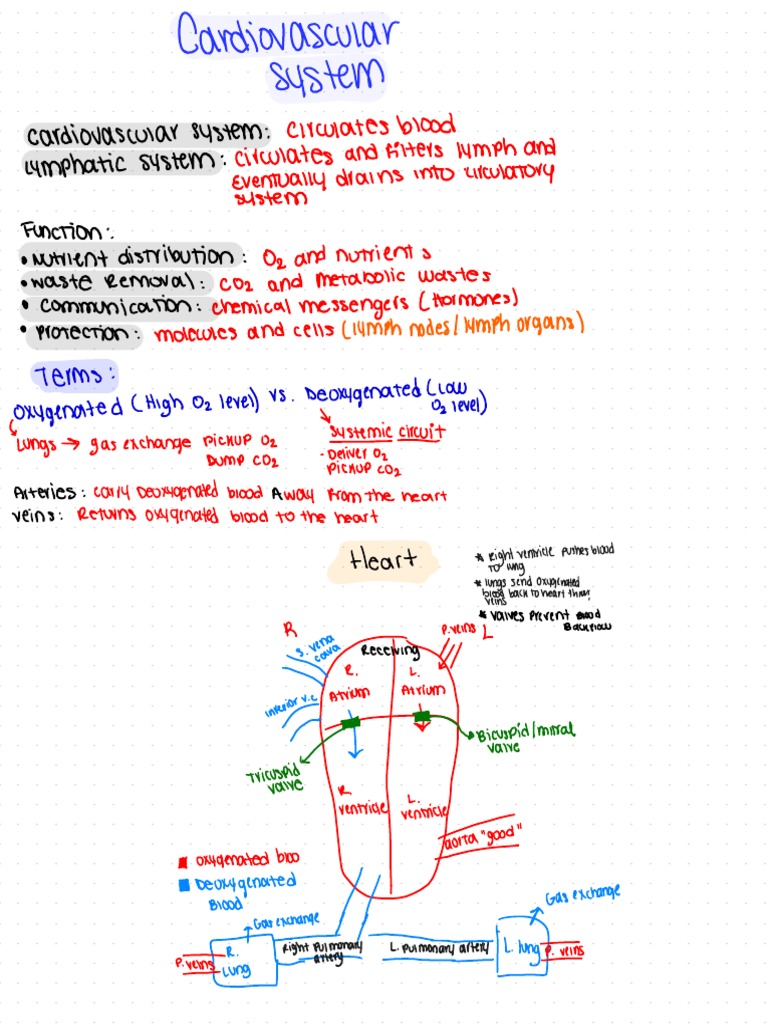 Cardiovascular
system
cardiovascular system: circulates blood
Lymphatic system: circulates and filters lymph and
eventually drains into circulatory
system
Function:
• Nutrient distribution: O2 and nutrients
• Waste Removal: CO2 and metabolic wastes
• Communication: chemical messengers (Hormones)
• Protection: molecules and cells (lymph nodes/lymph organs)
Terms:
Oxygenated (High O2 level) vs. Deoxygenated (Low
O2 level)
Lungs → gas exchange Pickup O2
Dump CO2
Systemic circuit
- Deliver O2
Pickup CO2
Arteries: carry Deoxygenated blood Away from the heart
veins: Returns oxygenated blood to the heart
Heart
* Right ventricle pushes blood
to lung
* lungs send oxygenated
blood back to heart thru
veins
* valves prevent Blood
Backflow
R
S. vena
cava
Receiving
P. veins L
R.
Atrium
L.
Atrium
inferior v.c
Bicuspid/mitral
valve
Tricuspid
valve
R
ventricle
L.
ventricle
aorta "good"
oxygenated bloo
Deoxygenated
Blood
Gas exchange
Gas exchange
P. veins
R.
Lung
Right Pulmonary
artery
L. Pulmonary artery
L. lung
P. veins